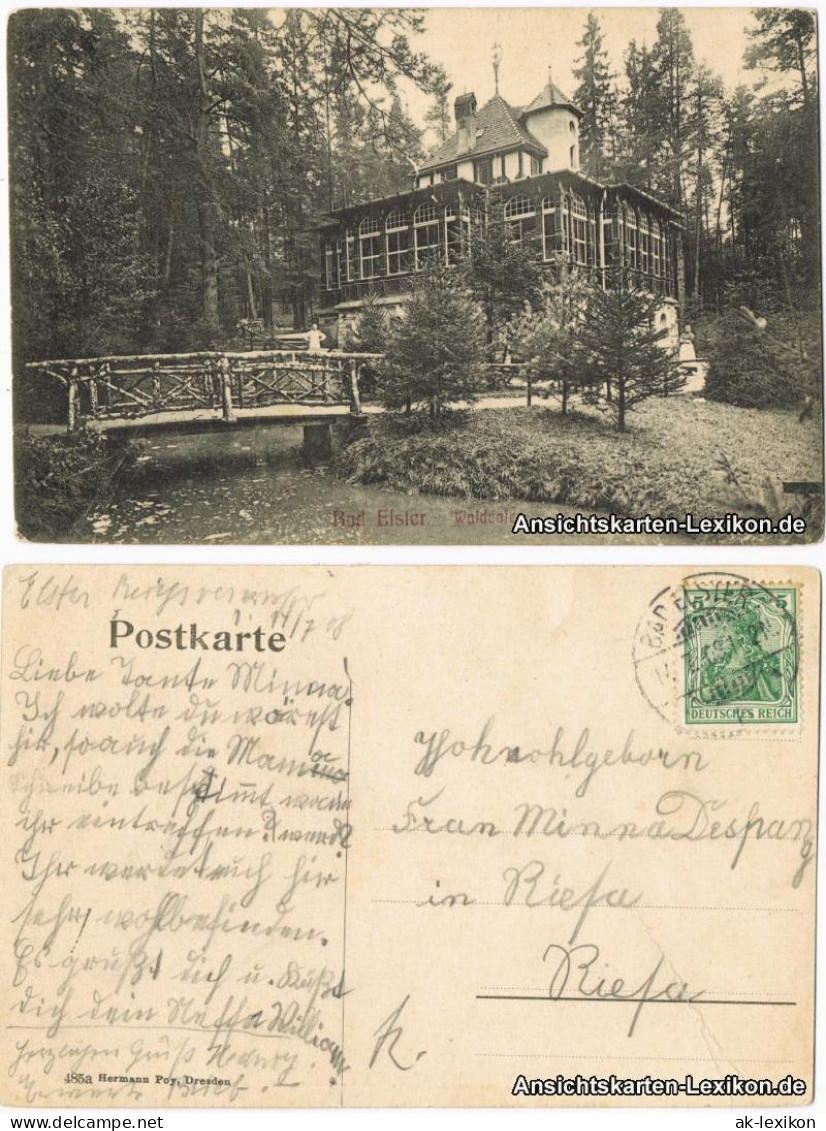 Bad Elster
Ansichtskarten-Lexikon.de
Elster
11/7 08
Postkarte
Liebe Tante Minna!
Ich wolte du wärest
hir, so auch die Mama
Schreibe bestimt wann
ihr eintreffen
Ihr werdet euch hir
sehr wohlbefinden.
Es grüßt dich u. küßt
dich dein Neffe William
Herzlichen Gruß Hedwig.
485a Hermann Poy, Dresden
BAD ELSTER
5 5
DEUTSCHES REICH
Hohwohlgeborn
Frau Minna Despang
in Riesa
Riesa
Ansichtskarten-Lexikon.de
ak-lexikon